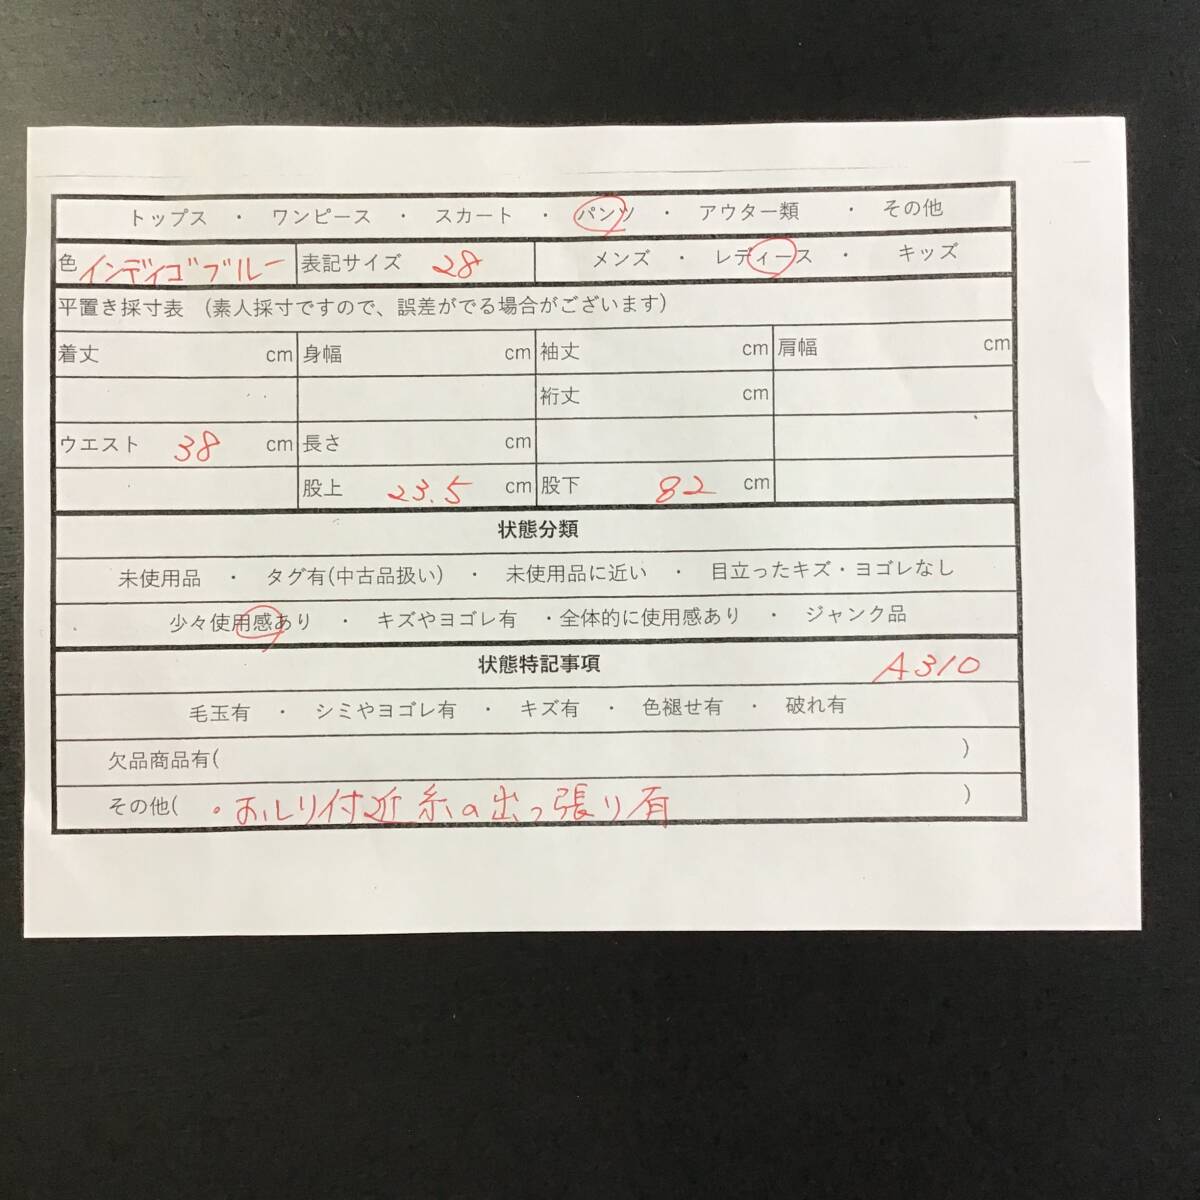 トップス ・ ワンピース ・ スカート ・ パンツ ・ アウター類 ・ その他
色 インディゴブルー 表記サイズ 28 メンズ ・ レディース ・ キッズ
平置き採寸表 (素人採寸ですので、誤差がでる場合がございます)
着丈 cm 身幅 cm 袖丈 cm 肩幅 cm
裄丈 cm
ウエスト 38 cm 長さ cm
股上 23.5 cm 股下 82 cm
状態分類
未使用品 ・ タグ有(中古品扱い) ・ 未使用品に近い ・ 目立ったキズ・ヨゴレなし
少々使用感あり ・ キズやヨゴレ有 ・全体的に使用感あり ・ ジャンク品
状態特記事項 A310
毛玉有 ・ シミやヨゴレ有 ・ キズ有 ・ 色褪せ有 ・ 破れ有
欠品商品有( )
その他( ・おしり付近 糸の出っ張り有 )